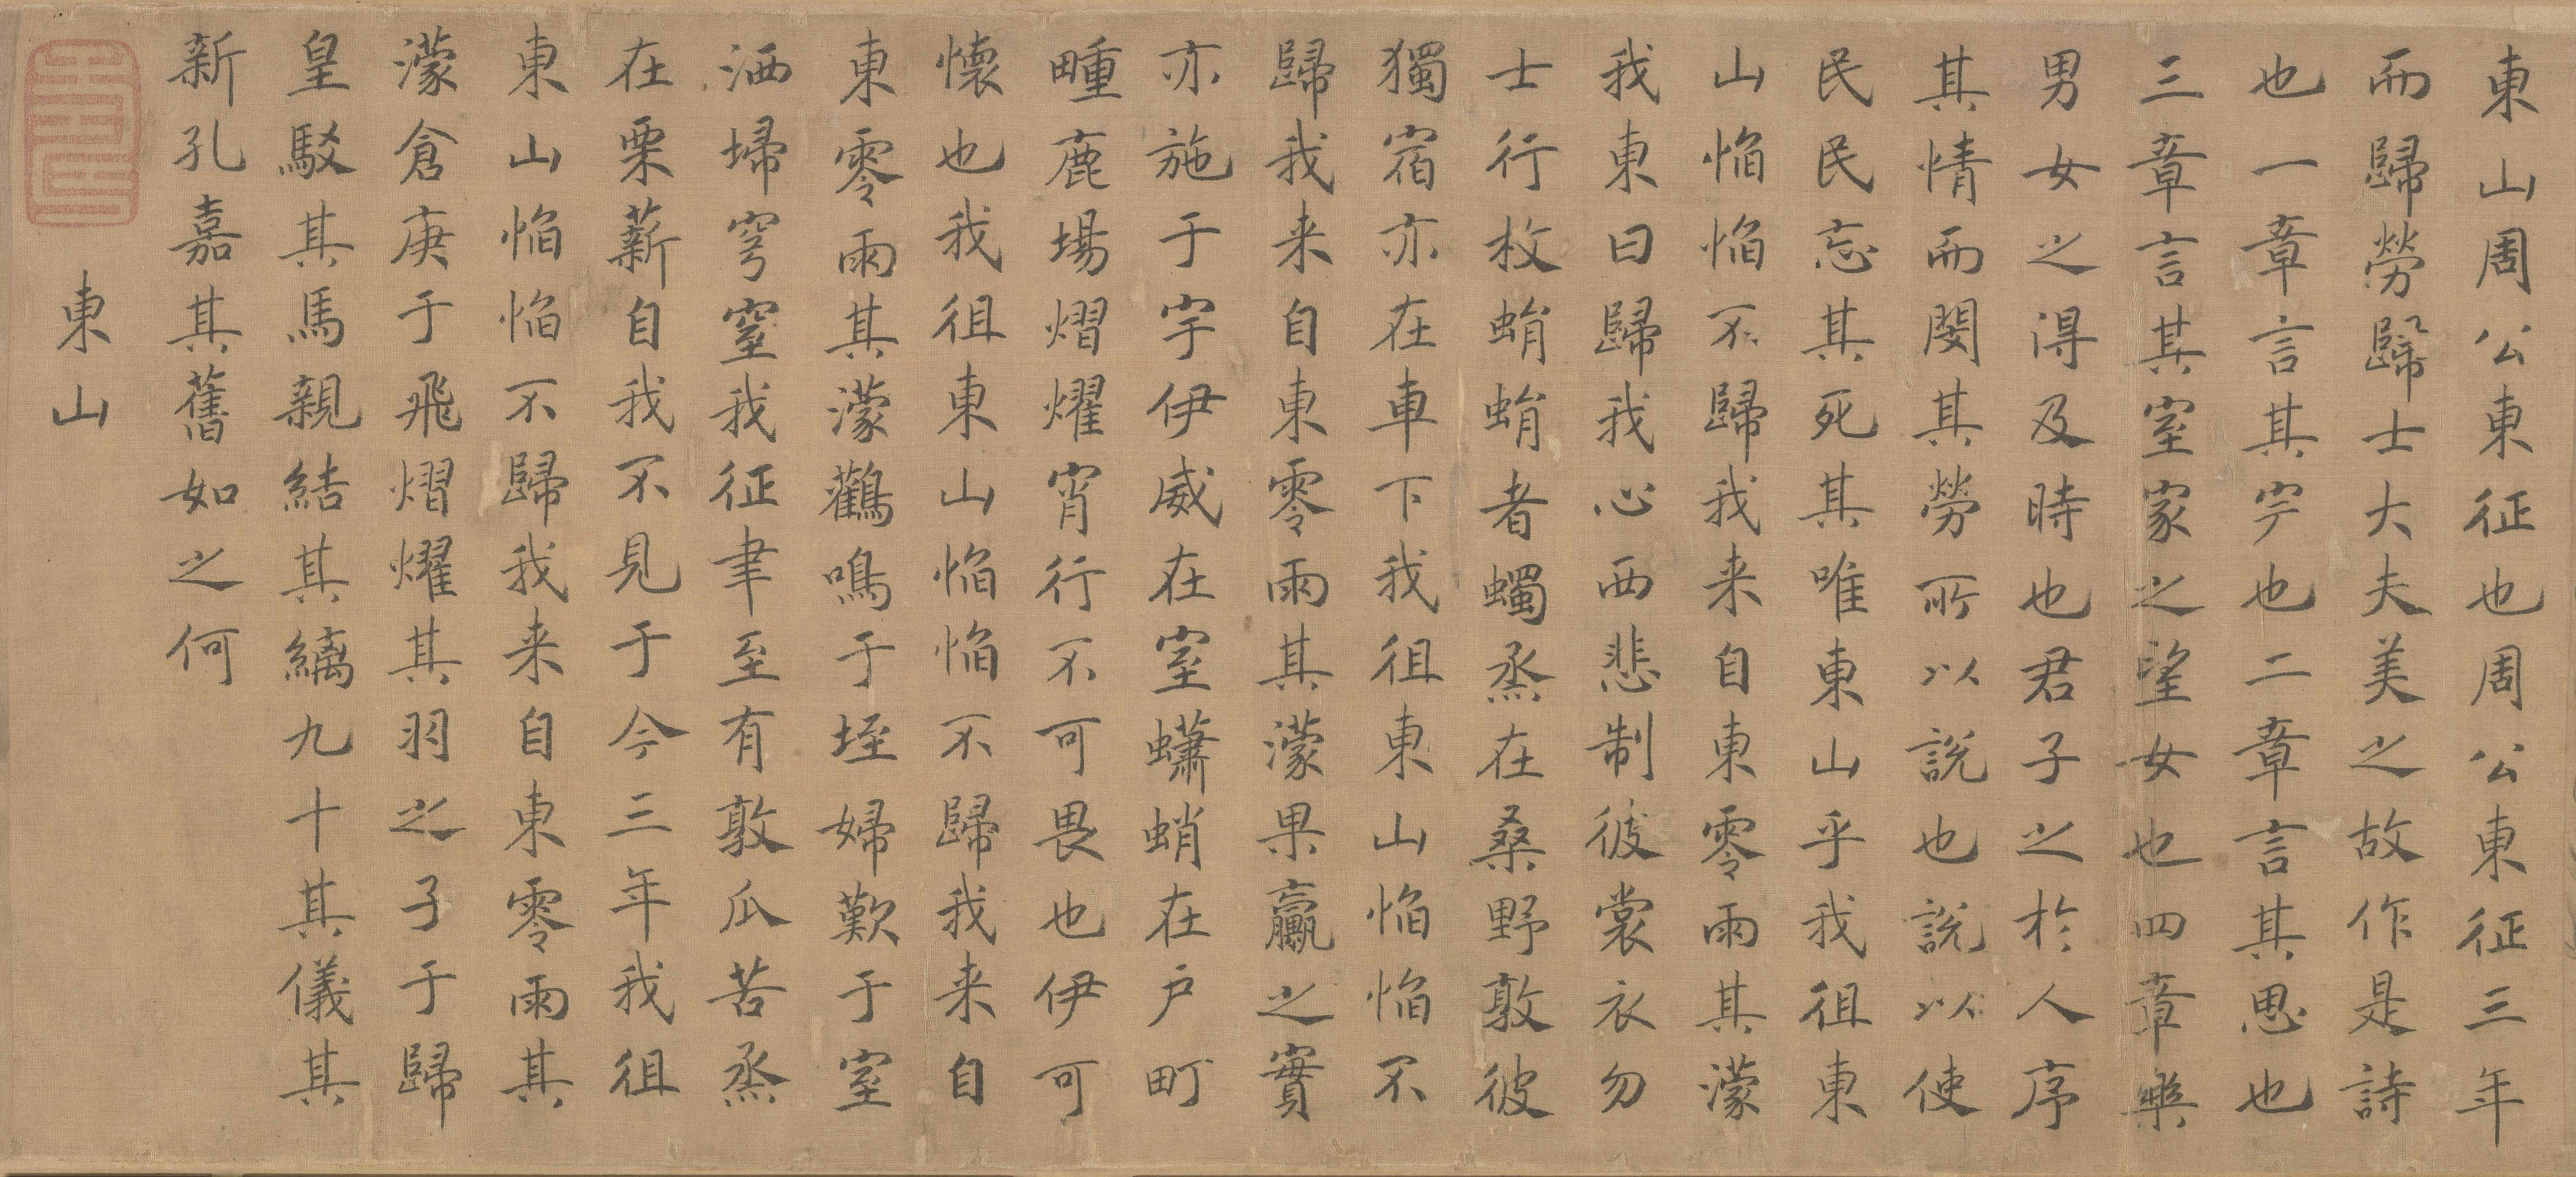 東山周公東征也周公東征三年
而歸勞歸士大夫美之故作是詩
也一章言其完也二章言其思也
三章言其室家之望女也四章樂
男女之得及時也君子之於人序
其情而閔其勞所以說也說以使
民民忘其死其唯東山乎我徂東
山慆慆不歸我来自東零雨其濛
我東曰歸我心西悲制彼裳衣勿
士行枚蜎蜎者蠋烝在桑野敦彼
獨宿亦在車下我徂東山慆慆不
歸我来自東零雨其濛果臝之實
亦施于宇伊威在室蠨蛸在戶町
畽鹿場熠燿宵行不可畏也伊可
懷也我徂東山慆慆不歸我来自
東零雨其濛鸛鳴于垤婦歎于室
洒埽穹窒我征聿至有敦瓜苦烝
在栗薪自我不見于今三年我徂
東山慆慆不歸我来自東零雨其
濛倉庚于飛熠燿其羽之子于歸
皇駁其馬親結其縭九十其儀其
新孔嘉其舊如之何
東山